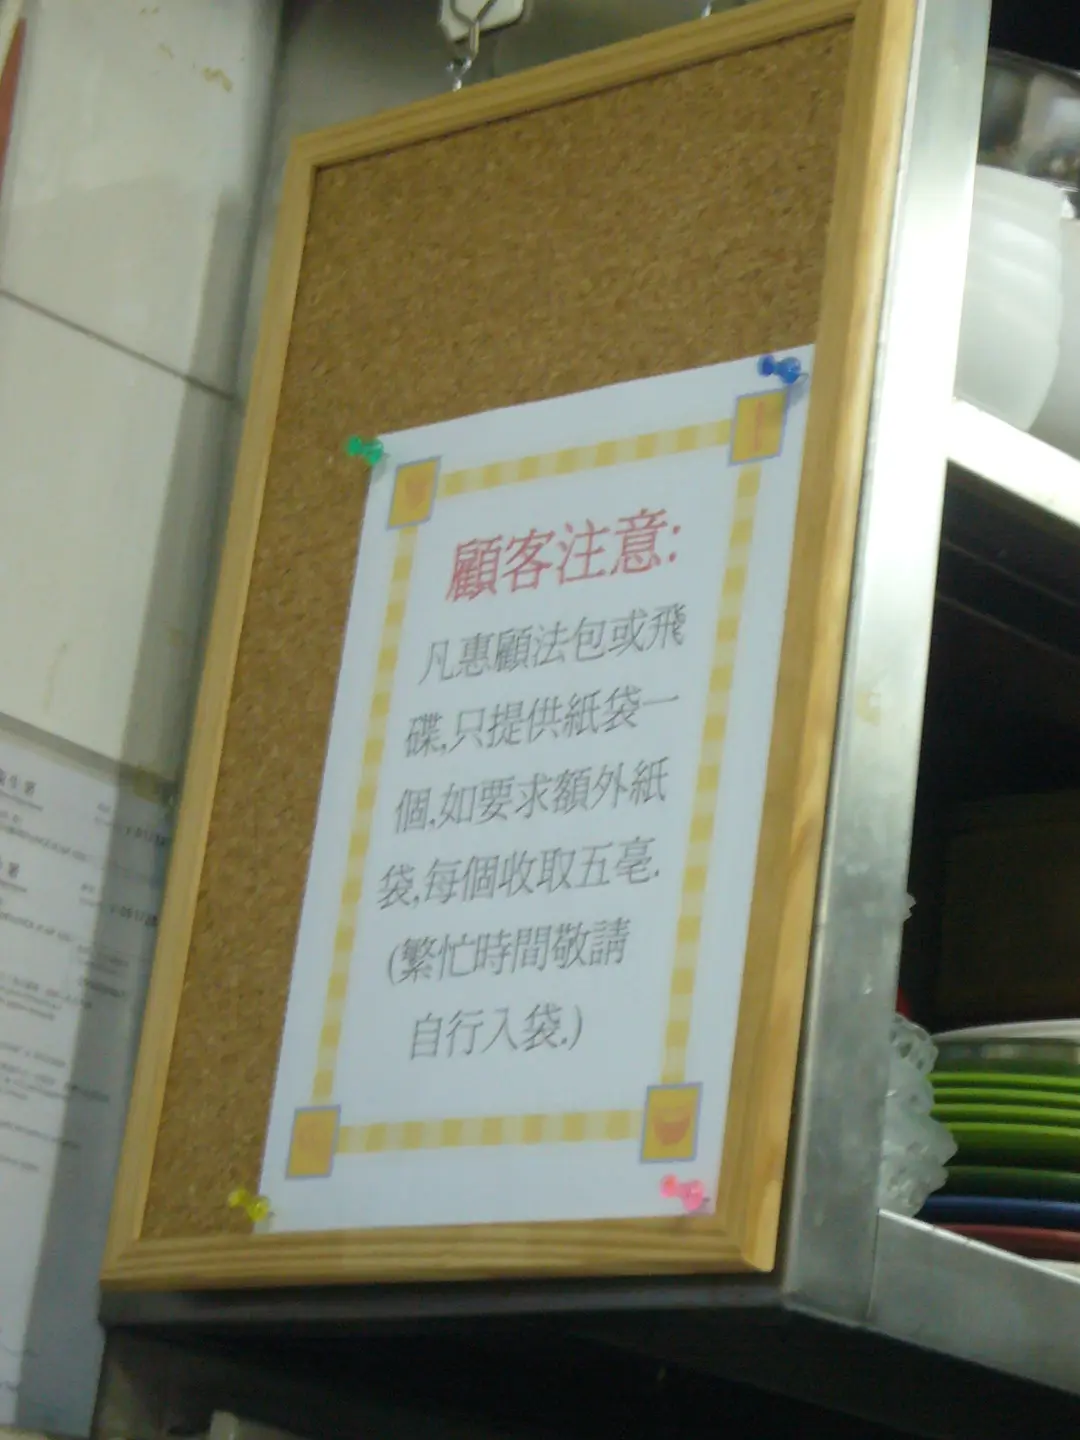 顧客注意:
凡惠顧法包或飛
碟,只提供紙袋一
個,如要求額外紙
袋,每個收取五毫.
(繁忙時間敬請
自行入袋.)